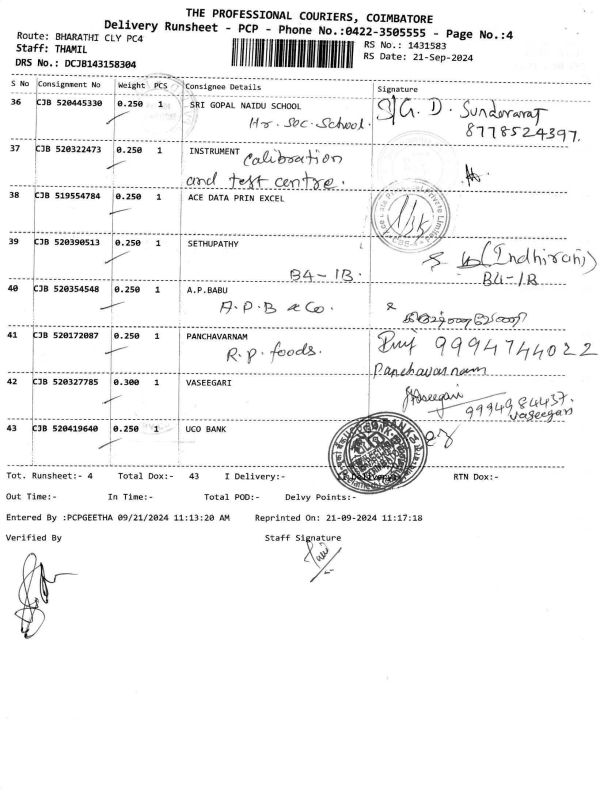 THE PROFESSIONAL COURIERS, COIMBATORE
Delivery Runsheet - PCP - Phone No.:0422-3505555 - Page No.:4
Route: BHARATHI CLY PC4
RS No.: 1431583
Staff: THAMIL
RS Date: 21-Sep-2024
DRS No.: DCJB143158304
S No Consignment No Weight PCS Consignee Details Signature
36 CJB 520445330 0.250 1 SRI GOPAL NAIDU SCHOOL
Hr. Sec. School.
S/G. D. Sundararaj
8778524397.
37 CJB 520322473 0.250 1 INSTRUMENT Calibration
and test centre.
38 CJB 519554784 0.250 1 ACE DATA PRIN EXCEL
39 CJB 520390513 0.250 1 SETHUPATHY
B4-1B
(Indhirani)
B4-1B
40 CJB 520354548 0.250 1 A.P.BABU
A.P.B & Co.
41 CJB 520172087 0.250 1 PANCHAVARNAM
R.p. foods.
9994744022
Panchavarnam
42 CJB 520327785 0.300 1 VASEEGARI
Vaseegari
9994984437.
Vaseegari
43 CJB 520419640 0.250 1 UCO BANK
Tot. Runsheet:- 4 Total Dox:- 43 I Delivery:- II Delivery:- RTN Dox:-
Out Time:- In Time:- Total POD:- Delvy Points:-
Entered By :PCPGEETHA 09/21/2024 11:13:20 AM Reprinted On: 21-09-2024 11:17:18
Verified By Staff Signature